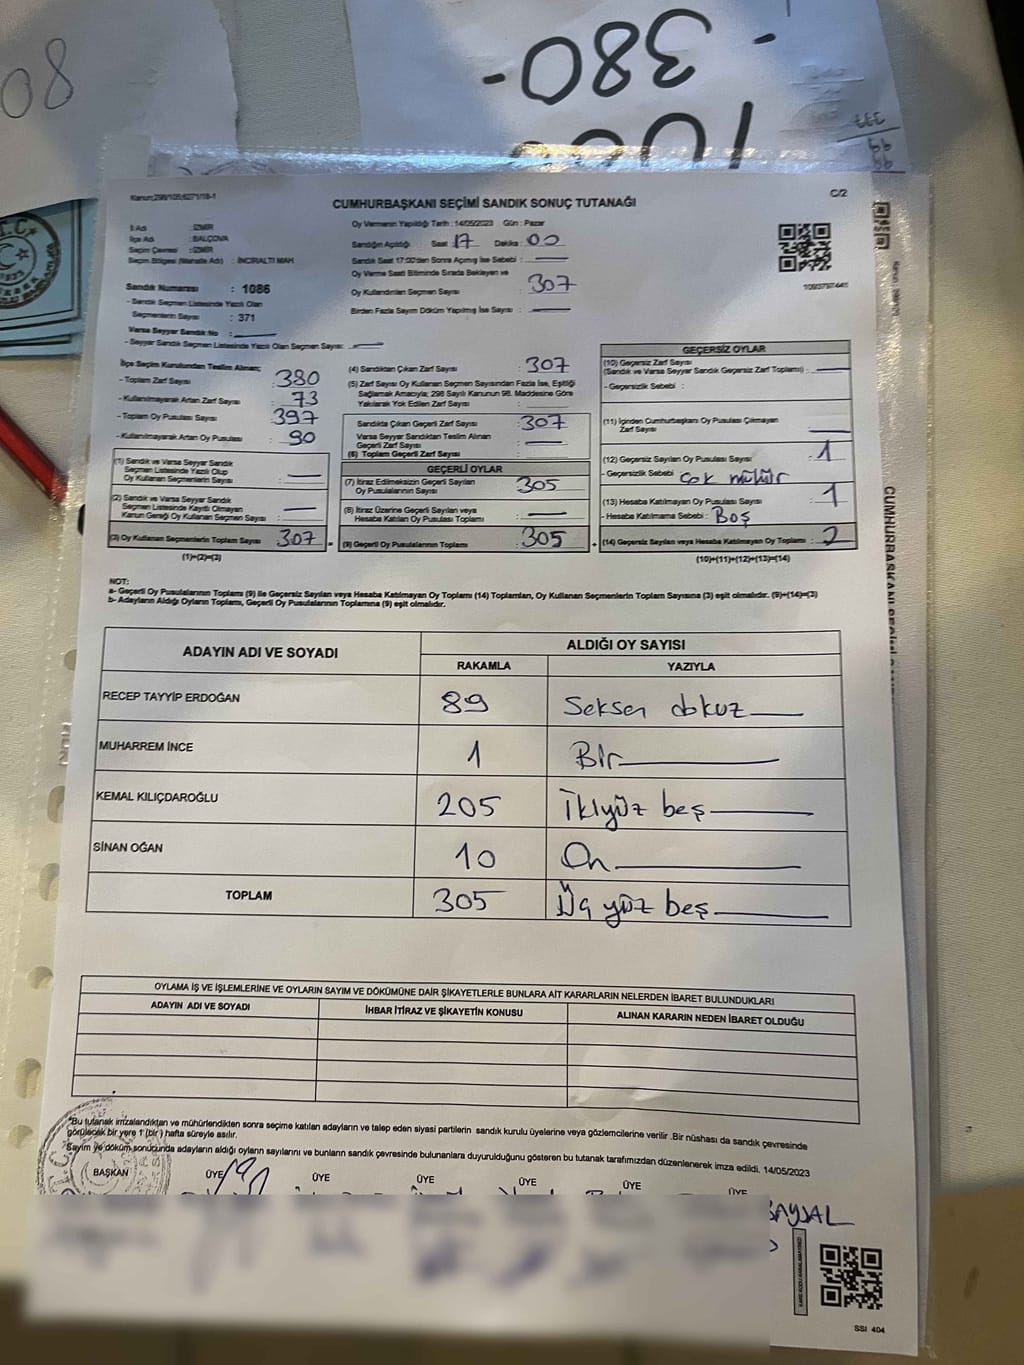 08
- 380 -
Kanun:298/105;6271/18-1
CUMHURBAŞKANI SEÇİMİ SANDIK SONUÇ TUTANAĞI
C/2
İl Adı : İZMİR
İlçe Adı : BALÇOVA
Seçim Çevresi : İZMİR
Seçim Bölgesi (Mahalle Adı) : İNCİRALTI MAH
Sandık Numarası : 1086
- Sandık Seçmen Listesinde Yazılı Olan
Seçmenlerin Sayısı : 371
Varsa Seyyar Sandık No :
- Seyyar Sandık Seçmen Listesinde Yazılı Olan Seçmen Sayısı:
Oy Vermenin Yapıldığı Tarih : 14/05/2023 Gün : Pazar
Sandığın Açıldığı Saat : 17 Dakika : 00
Sandık Saat 17:00'den Sonra Açılmış İse Sebebi :
Oy Verme Saati Bitiminde Sırada Bekleyen ve
Oy Kullandırılan Seçmen Sayısı : 307
Birden Fazla Sayım Döküm Yapılmış İse Sayısı :
İlçe Seçim Kurulundan Teslim Alınan;
- Toplam Zarf Sayısı : 380
- Kullanılmayarak Artan Zarf Sayısı : 73
- Toplam Oy Pusulası Sayısı : 397
- Kullanılmayarak Artan Oy Pusulası : 90
(1) Sandık ve Varsa Seyyar Sandık
Seçmen Listesinde Yazılı Olup
Oy Kullanan Seçmenlerin Sayısı :
(2) Sandık ve Varsa Seyyar Sandık
Seçmen Listesinde Kayıtlı Olmayan
Kanun Gereği Oy Kullanan Seçmen Sayısı :
(3) Oy Kullanan Seçmenlerin Toplam Sayısı : 307
(1)+(2)=(3)
(4) Sandıktan Çıkan Zarf Sayısı : 307
(5) Zarf Sayısı Oy Kullanan Seçmen Sayısından Fazla İse, Eşitliği
Sağlamak Amacıyla; 298 Sayılı Kanunun 98. Maddesine Göre
Yakılarak Yok Edilen Zarf Sayısı :
Sandıkta Çıkan Geçerli Zarf Sayısı : 307
Varsa Seyyar Sandıktan Teslim Alınan
Geçerli Zarf Sayısı :
(6) Toplam Geçerli Zarf Sayısı :
GEÇERLİ OYLAR
(7) İtiraz Edilmeksizin Geçerli Sayılan
Oy Pusulalarının Sayısı : 305
(8) İtiraz Üzerine Geçerli Sayılan veya
Hesaba Katılan Oy Pusulası Toplamı :
(9) Geçerli Oy Pusulalarının Toplamı : 305
GEÇERSİZ OYLAR
(10) Geçersiz Zarf Sayısı
(Sandık ve Varsa Seyyar Sandık Geçersiz Zarf Toplamı) :
- Geçersizlik Sebebi :
(11) İçinden Cumhurbaşkanı Oy Pusulası Çıkmayan
Zarf Sayısı :
(12) Geçersiz Sayılan Oy Pusulası Sayısı : 1
- Geçersizlik Sebebi : Çok mühür
(13) Hesaba Katılmayan Oy Pusulası Sayısı : 1
- Hesaba Katılmama Sebebi : Boş
(14) Geçersiz Sayılan veya Hesaba Katılmayan Oy Toplamı : 2
(10)+(11)+(12)+(13)=(14)
NOT:
a- Geçerli Oy Pusulalarının Toplamı (9) ile Geçersiz Sayılan veya Hesaba Katılmayan Oy Toplamı (14) Toplamları, Oy Kullanan Seçmenlerin Toplam Sayısına (3) eşit olmalıdır. (9)+(14)=(3)
b- Adayların Aldığı Oyların Toplamı, Geçerli Oy Pusulalarının Toplamına (9) eşit olmalıdır.
ADAYIN ADI VE SOYADI ALDIĞI OY SAYISI
RAKAMLA YAZIYLA
RECEP TAYYİP ERDOĞAN 89 Seksen dokuz
MUHARREM İNCE 1 Bir
KEMAL KILIÇDAROĞLU 205 İkiyüz beş
SİNAN OĞAN 10 On
TOPLAM 305 Üç yüz beş
OYLAMA İŞ VE İŞLEMLERİNE VE OYLARIN SAYIM VE DÖKÜMÜNE DAİR ŞİKAYETLERLE BUNLARA AİT KARARLARIN NELERDEN İBARET BULUNDUKLARI
ADAYIN ADI VE SOYADI İHBAR İTİRAZ VE ŞİKAYETİN KONUSU ALINAN KARARIN NEDEN İBARET OLDUĞU
*Bu tutanak imzalandıktan ve mühürlendikten sonra seçime katılan adayların ve talep eden siyasi partilerin sandık kurulu üyelerine veya gözlemcilerine verilir .Bir nüshası da sandık çevresinde
görülecek bir yere 1 (bir) hafta süreyle asılır.
*Sayım ve döküm sonucunda adayların aldığı oyların sayılarını ve bunların sandık çevresinde bulunanlara duyurulduğunu gösteren bu tutanak tarafımızdan düzenlenerek imza edildi. 14/05/2023
BAŞKAN ÜYE ÜYE ÜYE ÜYE ÜYE ÜYE
BAYSAL
SSI 404